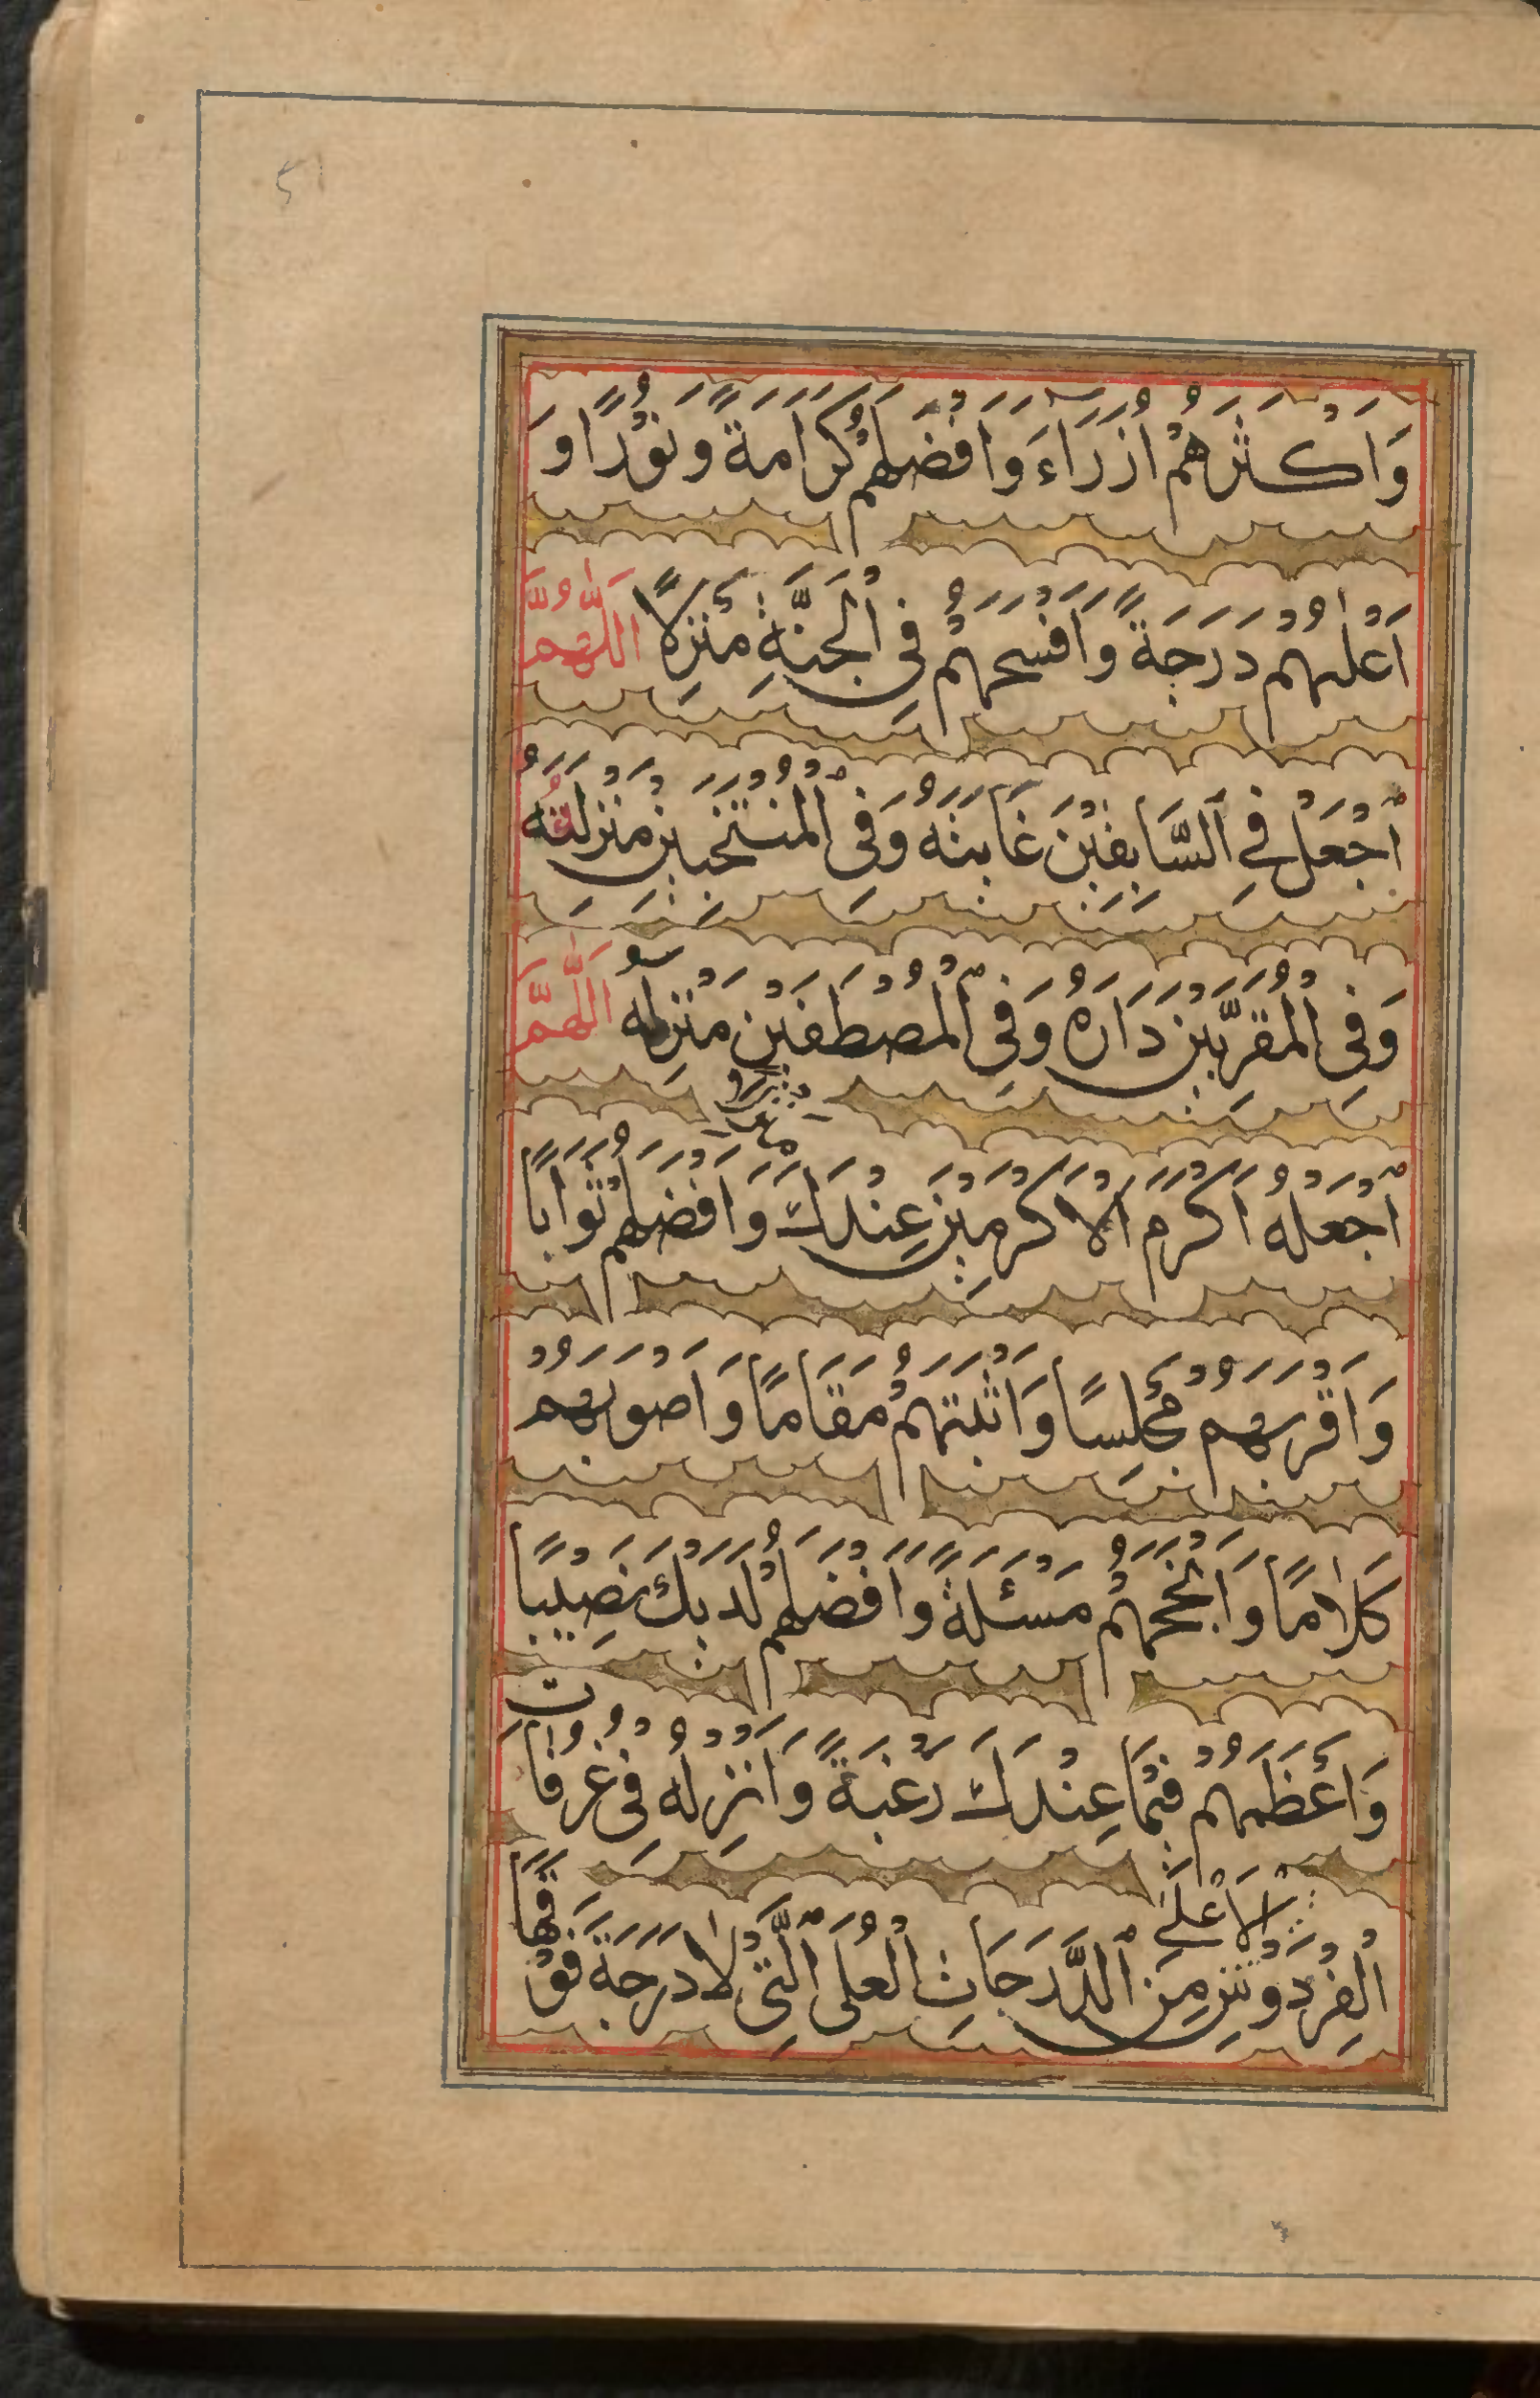 وَاَكْثَرَهُمْ اُزَرَآءَ وَاَفْضَلَهُمْ كَرَامَةً وَنُوْرًا وَ
اَعْلٰهُمْ دَرَجَةً وَاَفْسَحَهُمْ فِى الْجَنَّةِ مَنْزِلًا اَللّٰهُمَّ
اجْعَلْ فِى السَّابِقِيْنَ غَايَتَهُ وَفِى الْمُنْتَخَبِيْنَ مَنْزِلَتَهُ
وَفِى الْمُقَرَّبِيْنَ دَارَهُ وَفِى الْمُصْطَفَيْنَ مَنْزِلَهُ اَللّٰهُمَّ
اجْعَلْهُ اَكْرَمَ الْاَكْرَمِيْنَ عِنْدَكَ وَاَفْضَلَهُمْ ثَوَابًا
وَاَقْرَبَهُمْ مَجْلِسًا وَاَثْبَتَهُمْ مَقَامًا وَاَصْوَبَهُمْ
كَلَامًا وَاَنْجَحَهُمْ مَسْئَلَةً وَاَفْضَلَهُمْ لَدَيْكَ نَصِيْبًا
وَاَعْظَمَهُمْ فِيْمَا عِنْدَكَ رَغْبَةً وَاَنْزِلْهُ فِى غُرُفَاتِ
الْاَعْلٰى
الْفِرْدَوْسِ مِنَ الدَّرَجَاتِ الْعُلَى الَّتِى لَا دَرَجَةَ فَوْقَهَا